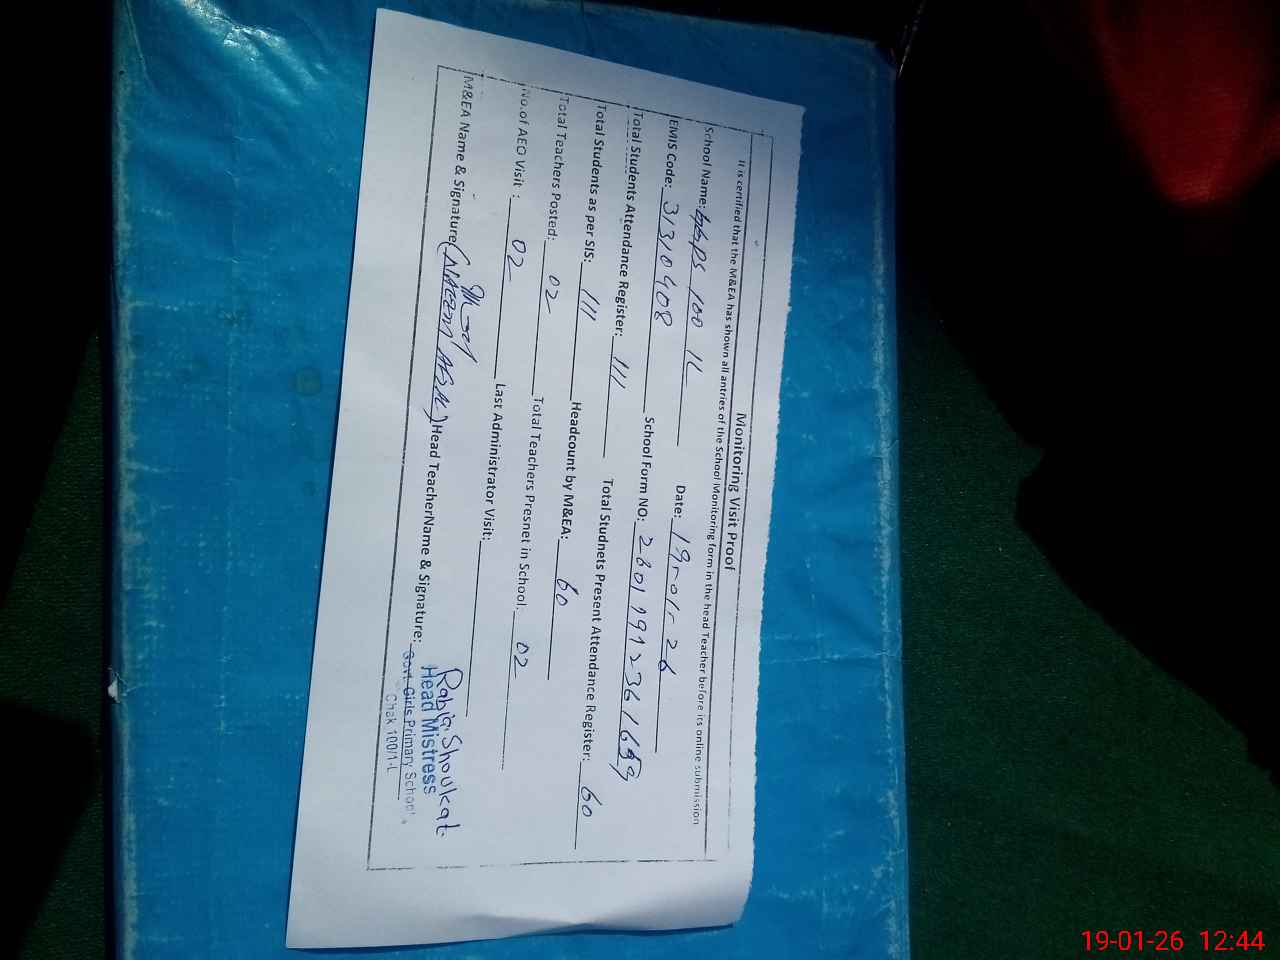 Monitoring Visit Proof
It is certified that the M&EA has shown all antries of the School Monitoring form in the head Teacher before its online submission
School Name: GGPS 100 1L Date: 19-01-26
EMIS Code: 31310408 School Form NO:
Total Students Attendance Register: 111 Total Studnets Present Attendance Register: 60
Total Students as per SIS: 111 Headcount by M&EA: 60
Total Teachers Posted: 02 Total Teachers Presnet in School: 02
No.of AEO Visit : 02 Last Administrator Visit:
M&EA Name & Signature Head TeacherName & Signature:
Rabia Shoukat
Head Mistress
Govt. Girls Primary School
Chak 100/1-L
19-01-26 12:44